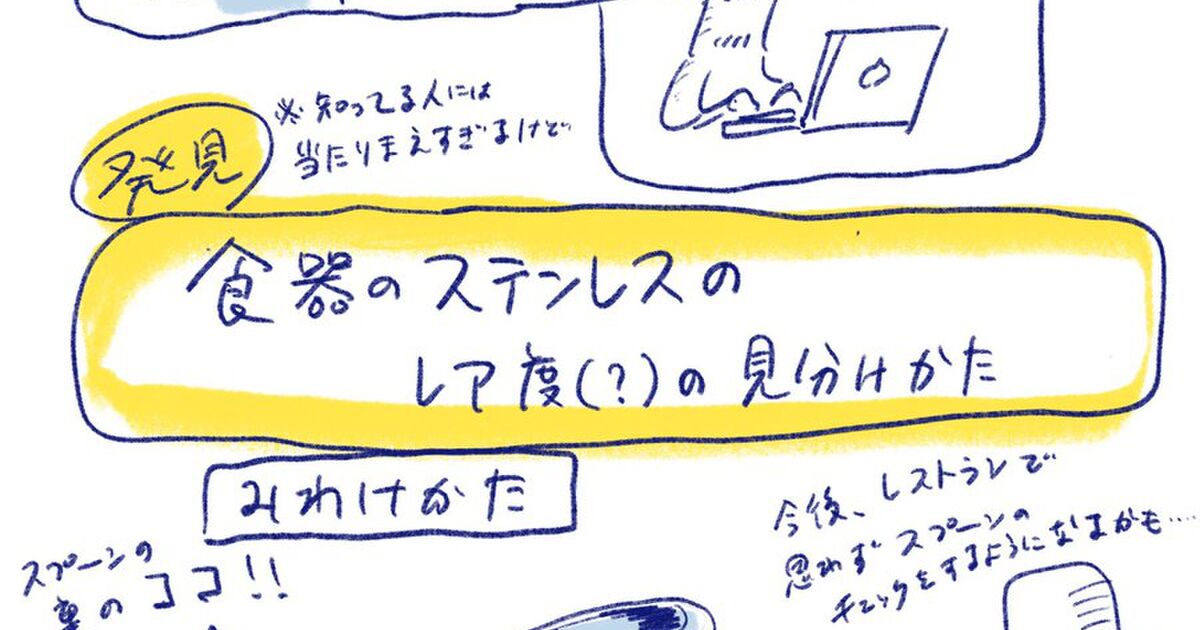 発見
※知ってる人には
当たりまえすぎるけど
食器のステンレスの
レア度(?)の見分けかた
みわけかた
スプーンの
裏のココ!!
今後、レストランで
思わずスプーンの
チェックをするようになるかも‥‥